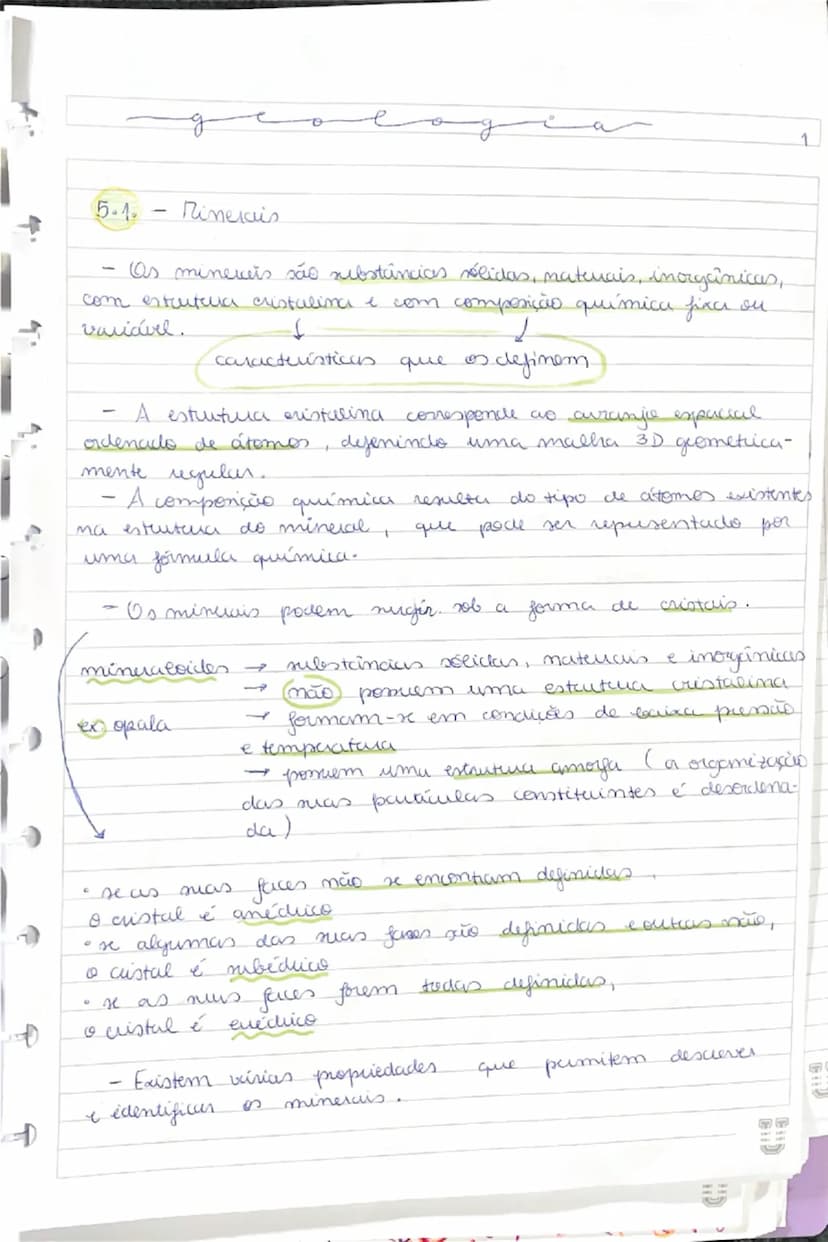 geologia
1
5.1. - Minerais
- Os minerais são substâncias sólidas, naturais, inorgânicas,
com estrutura cristalina e com composição química fixa ou
variável.
características que os definem
- A estrutura cristalina corresponde ao arranjo espacial
ordenado de átomos, definindo uma malha 3D geometrica-
mente regular.
- A composição química resulta do tipo de átomos existentes
na estrutura do mineral, que pode ser representado por
uma fórmula química.
- Os minerais podem surgir sob a forma de cristais.
mineraloides → substâncias sólidas, naturais e inorgânicas
→ não possuem uma estrutura cristalina
ex opala → formam-se em condições de baixa pressão
e temperatura
→ possuem uma estrutura amorfa (a organização
das suas partículas constituintes é desordena-
da)
• se as suas faces não se encontram definidas,
o cristal é anédrico
• se algumas das suas faces são definidas e outras não,
o cristal é subédrico
• se as suas faces forem todas definidas,
o cristal é euédrico
- Existem várias propriedades que permitem descrever
e identificar os minerais.